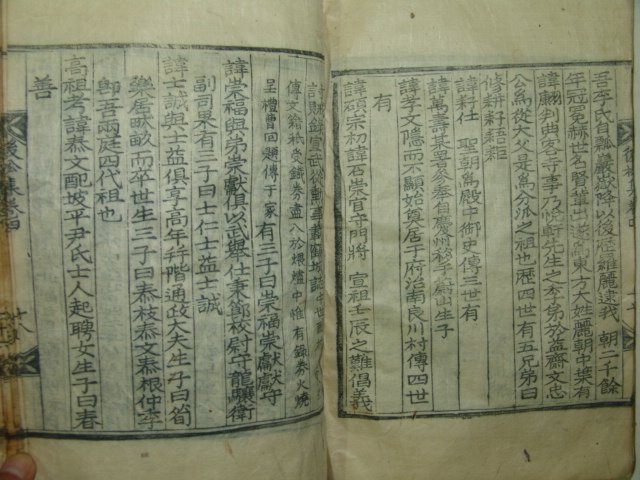 吾李氏自瓢巖嶽降以後歷羅麗逮我 朝二千餘
年冠冕赫世名賢軰出遂爲東方大姓麗朝中葉有
諱翮判典客寺事乃怡軒先生之李弟於益齋文忠
公爲從大父是爲分派之祖也歷四世有五兄弟曰
脩耕籽
諱籽仕 聖朝爲殿中御史傳三世有
諱萬壽果毅今奉自慶州移于蔚山生子
諱孝文隱而不顯始奠居于府治南良川村傳四世
有
諱碩崇初諱石崇官守門將 宣祖壬辰之難倡義
討賊錄宣武從勳事載
傳文籍祇受錄券盡入於煨爐中惟有錄券火燒
呈禮曹回題傳于家 有三子曰崇福崇獻獻守
諱崇福與弟崇獻俱以武擧仕秉節校尉守龍驤衛
副司果有三子曰士仁士益士誠
諱士誠與士益俱享高年幷階通政大夫生子曰筍
樂居畎畝而卒世生三子曰泰枝泰文泰根仲季
卽吾兩庭四代祖也
高祖考諱泰文配坡平尹氏士人起聘女生子曰春
善